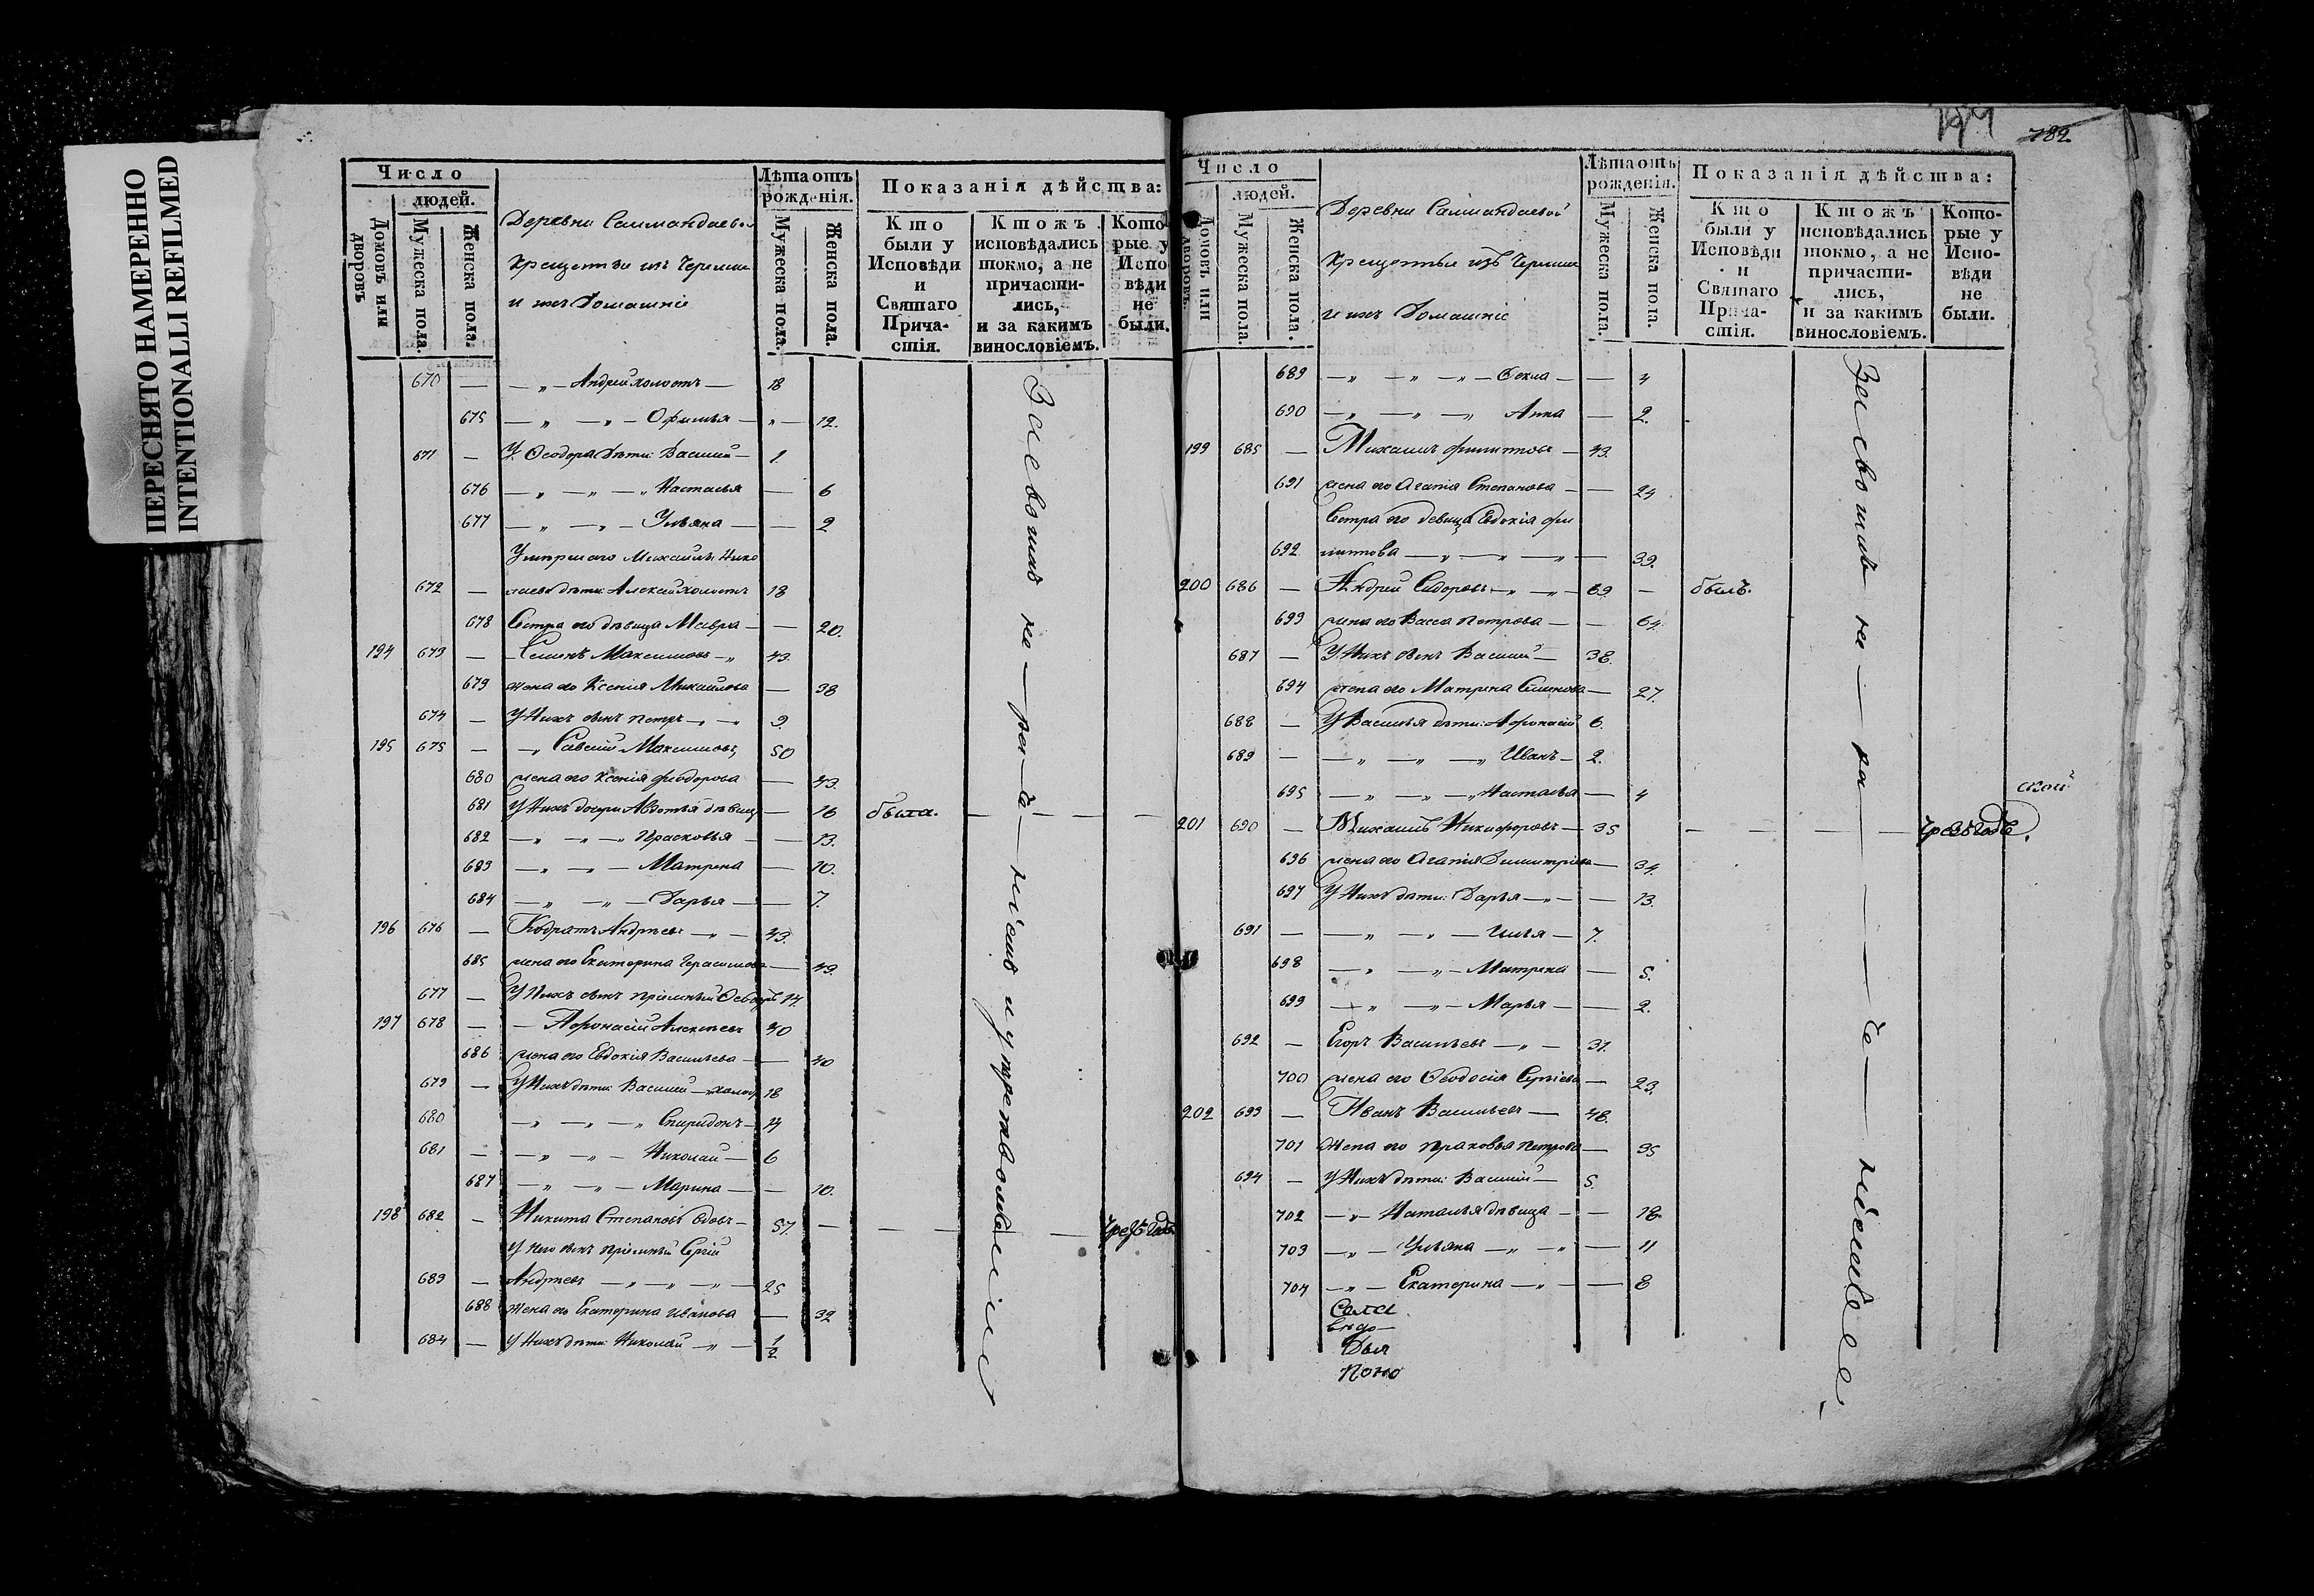 ПЕРЕСНЯТО НАМЕРЕННО
INTENTIONALLI REFILMED
Число
людей.
Домовъ или дворовъ
Мужеска пола.
Женска пола.
Деревни Салмандаевой
крещеные изъ Черемис
и ихъ Домашніе
Лѣта отъ рожденія.
Мужеска пола.
Женска пола.
Показанія дѣйства:
Кто были у Исповѣди и Святаго Причастія.
Ктожъ исповѣдались токмо, а не причастились, и за какимъ винословіемъ.
Которые у Исповѣди не были.
670 — — „ — Андрей холостъ — 18
675 — „ — „ — Офимья — „ — 12.
671 — У Ѳеодора дѣти: Василій — 1.
676 — „ — „ — „ Настасья — 6
677 — „ — „ — Ульяна — — 2
Умершаго Михаила Нико
672 — лаева дѣти: Алексей холостъ 18
678 Сестра его дѣвица Мавра — — 20.
194 673 — Семенъ Максимовъ — „ 43.
679 жена его Ксенія Михайлова — 38
674 — У Нихъ сынъ Петръ — „ — „ 9.
195 675 — — „ Савелій Максимовъ „ 50
680 жена его Ксенія Феодорова — 43.
681 У Нихъ дочери Авдотья дѣвица — 16 была. — — — —
682 — „ — „ — „ Прасковья — — 13.
683 — „ — „ — Матрена — 10.
684 — „ — „ — Дарья — — 7.
196 676 — Кодратъ Андреевъ — „ — 43.
685 жена его Екатерина Герасимова — 43.
677 — У Нихъ сынъ пріемный Ѳеодоръ 14.
197 678 — — Афонасій Алексѣевъ 40
686 жена его Евдокія Васильева — — 40
679 — У Нихъ дѣти: Василій — холостъ 18
680 — „ — „ — „ Спиридонъ — 14
681 — — „ — „ — Николай — 6
687 — „ — „ — Марина — — 10.
198 682 — Никита Степановъ вдовъ — 57. — — — — Чрезъ Годъ
У него сынъ пріемный Сергій
683 — Андреевъ — „ — „ — „ — 25
688 жена его Екатерина Иванова — 32
684 — У Нихъ дѣти: Николай — „ — 1/2
За евоимъ не — ра — дѣ — ніемъ и
782
Число
людей.
Домовъ или дворовъ.
Мужеска пола.
Женска пола.
Деревни Салмандаевой
крещеные изъ Черемис
и ихъ Домашніе
Лѣта отъ рожденія.
Мужеска пола.
Женска пола.
Показанія дѣйства:
Кто были у Исповѣди и Святаго Причастія.
Ктожъ исповѣдались токмо, а не причастились, и за какимъ винословіемъ.
Которые у Исповѣди не были.
689 — „ — „ — „ — Ѳекла — — 4
690 — „ — „ — „ Анна — 2.
199 685 — Михаилъ Филиповъ — 43.
691 жена его Агапія Степанова — — 24
Сестра его девица Евдокія Фи
692 липпова — „ — „ — „ — 39.
200 686 — Андрей Сидоровъ — „ — „ — 69. — былъ.
693 жена его Васса Петрова — — 64.
687 — У Нихъ сынъ Василій — 38.
694 жена его Матрена Семенова — 27.
688 — У Василья дѣти: Афонасій 6.
689 — — „ — „ — „ Иванъ — 2.
695 — „ — „ — „ Настасья — 4
201 690 — Михаилъ Никифоровъ — 35 — — — — Чрезъ Годъ.
696 жена его Агапія Димитріева — 34.
697 У Нихъ дѣти: Дарья — „ — — 13.
691 — — „ — „ — Илья — 7.
698 — „ — „ — Матрена — 5.
699 — „ — „ — Марья — — 2.
692 — Егоръ Васильевъ — „ — 31.
700 жена его Ѳеодосія Сергіева — 23.
202 693 — Иванъ Васильевъ — 48.
701 Жена его Праковья Петрова — 35
694 — У Нихъ дѣти: Василій — 5.
702 — „ — Наталья дѣвица — — 18.
703 — „ — Ульяна — „ — „ — 11
704 — „ — Екатерина — „ — — 8
За евоимъ не — ра — де — ніемъ